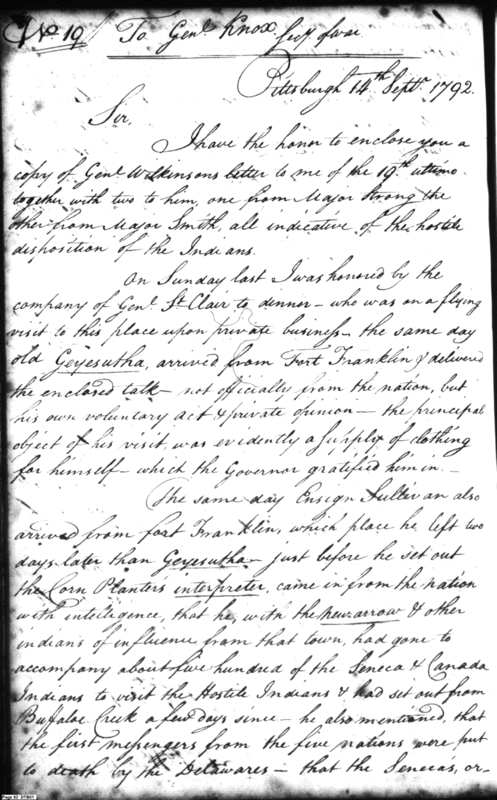 No 19 To Genl. Knox Secy. of war
Pittsburgh 14th Septr. 1792.
Sir,
I have the honor to enclose you a
copy of Genl. Wilkinsons letter to me of the 19th ultimo
together with two to him, one from Major Strong the
other from Major Smith, all indicative of the hostile
disposition of the Indians.
On Sunday last I was honored by the
company of Genl. St. Clair to dinner – who was on a flying
visit to this place upon private business – the same day
old Geyesutha, arrived from Fort Franklin & delivered
the enclosed talk – not officially from the nation, but
his own voluntary act & private opinion – the principal
object of his visit, was evidently a supply of clothing
for himself – which the Governor gratified him in. –
The same day Ensign Sullivan also
arrived from fort Franklin, which place he left two
days later than Geyesutha – just before he set out
the Corn Planters interpreter, came in from the nation
with intelligence, that he, with the New arrow & other
indians of influence from that town, had gone to
accompany about five hundred of the Seneca & Canada
Indians to visit the Hostile Indians & had set out from
Buffaloe Creek a few days since – he also mentioned, that
the first messengers from the five nations were put
to death by the Delawares – that the Seneca's, or-